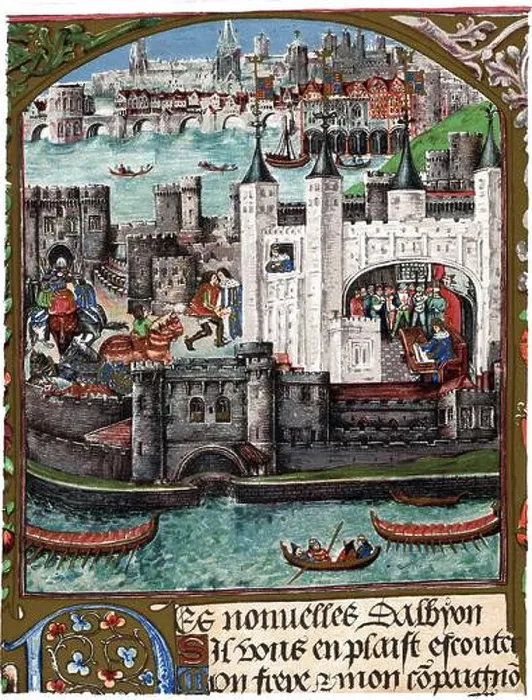 DEs nouuelles Dalbyon
SIl vous en plaist escoute
Mon frere ⁊ mon cõpaignõ